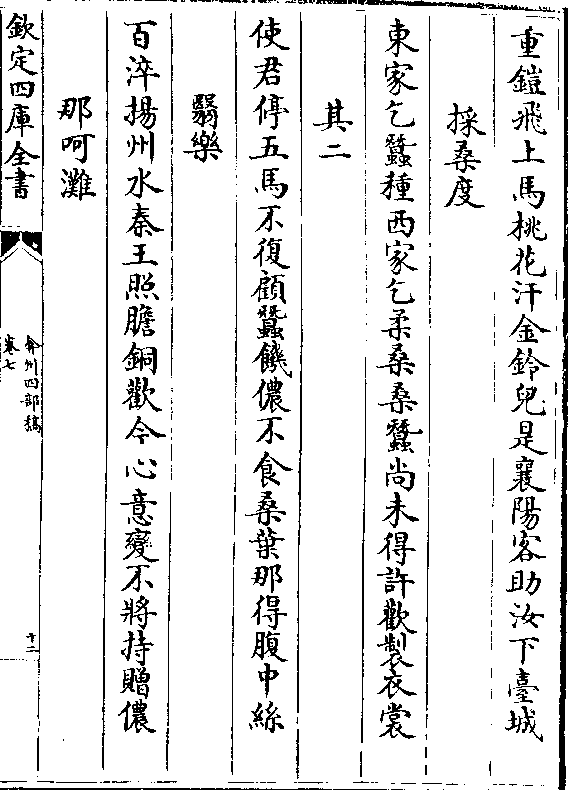 重鎧飛上馬桃花汗金鈴兒是襄陽客助汝下臺城
採桑度
東家乞蠶種西家乞柔桑桑蠶尚未得許歡製衣裳
其二
使君停五馬不復顧蠶饑儂不食桑葉那得腹中絲
翳樂
百淬揚州水秦王照膽銅歡今心意變不將持贈儂
那呵灘
欽定四庫全書
弇州四部稿
卷七
十二